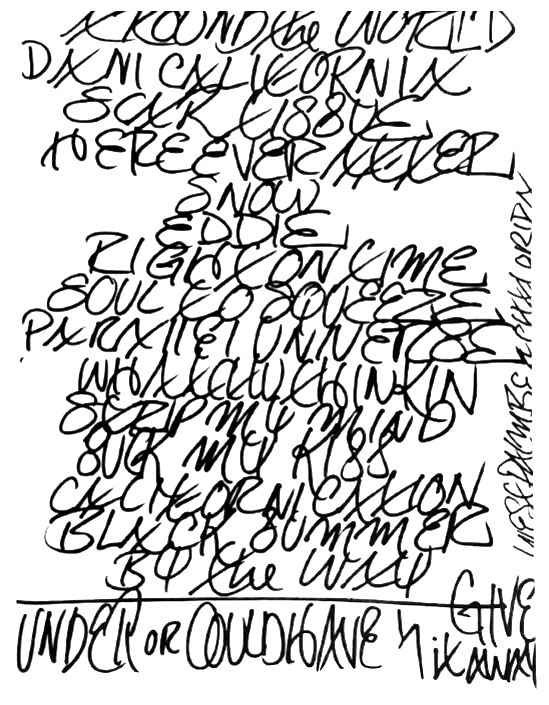 AROUND the WORLD
DANI CALIFORNIA
SCAR TISSUE
HERE EVER AFTER
SNOW
EDDIE
RIGHT ON TIME
SOUL TO SQUEEZE
PARALLEL UNIVERSE
WHATCHU THINKIN
STRIP MY MIND
SUCK MY KISS
CALIFORNICATION
BLACK SUMMER
BY the WAY
UNDER OR COULD HAVE
GIVE
it AWAY